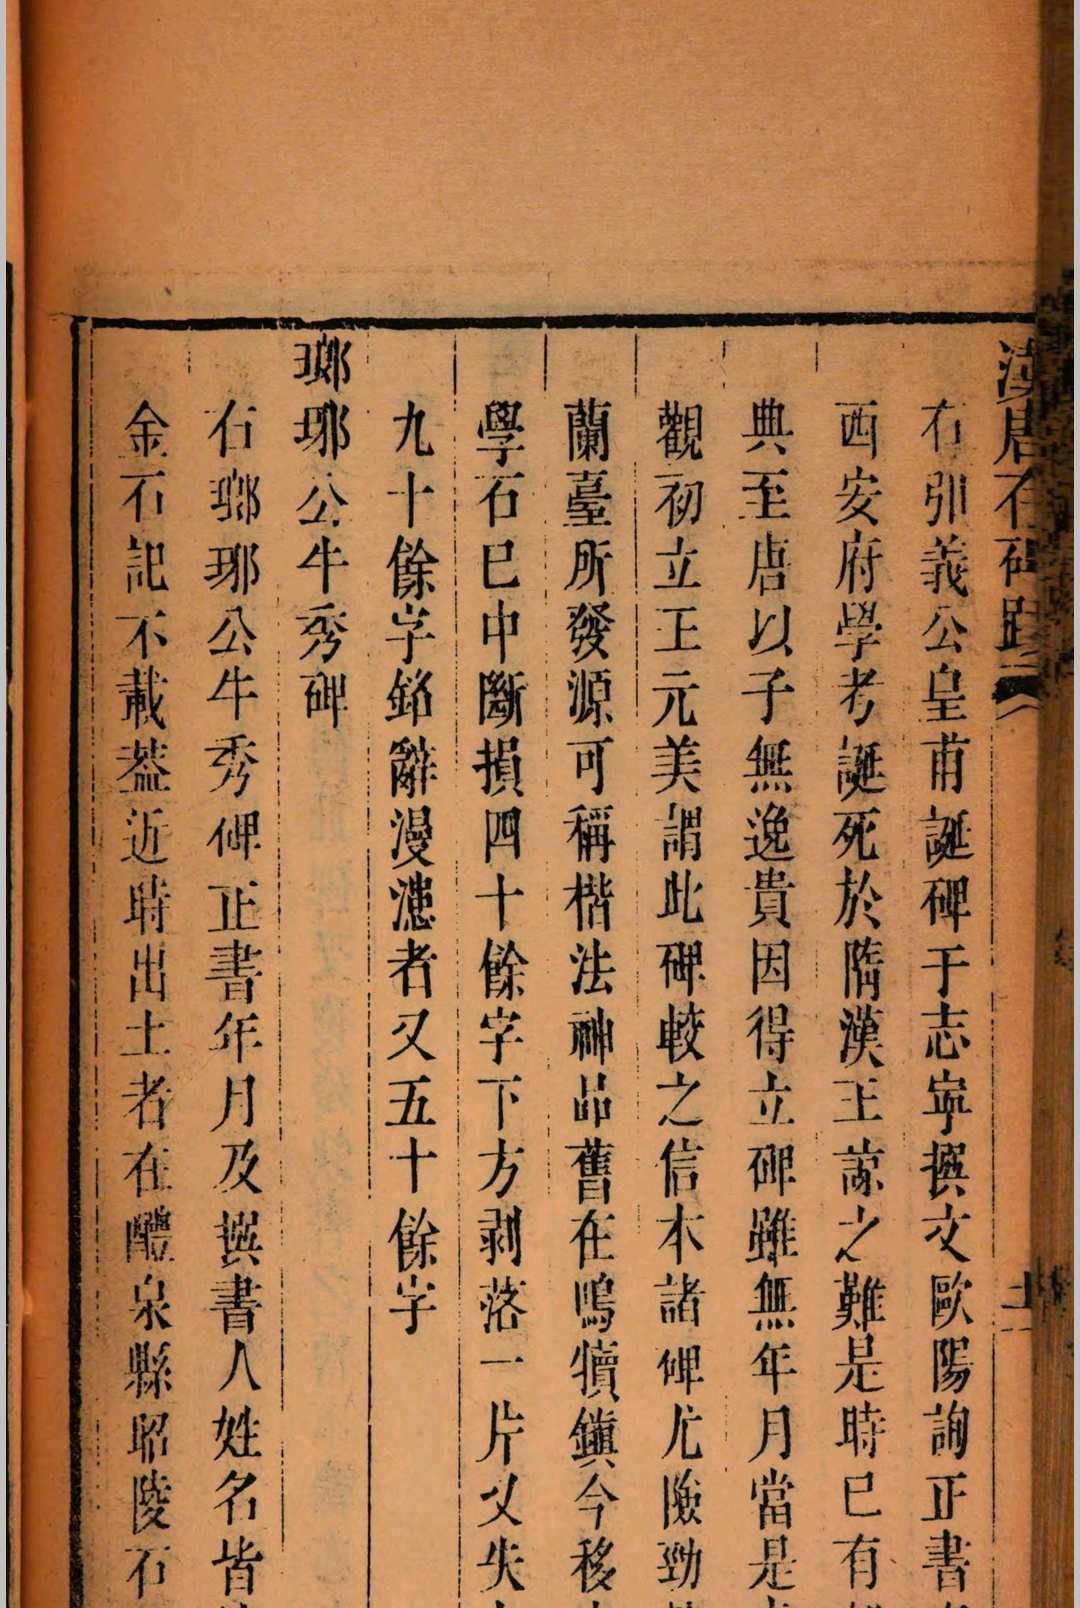 漢唐石碑跋
右引義公皇甫誕碑于志寧撰文歐陽詢正書
西安府學考誕死於隋漢王諒之難是時已有
典至唐以子無逸貴因得立碑雖無年月當是
觀初立王元美謂此碑較之信本諸碑尤險勁
蘭臺所發源可稱楷法神品舊在鳴犢鎮今移
學石已中斷損四十餘字下方剥落一片又失
九十餘字銘辭漫漶者又五十餘字
瑯琊公牛秀碑
右瑯琊公牛秀碑正書年月及撰書人姓名皆
金石記不載葢近時出土者在醴泉縣昭陵石